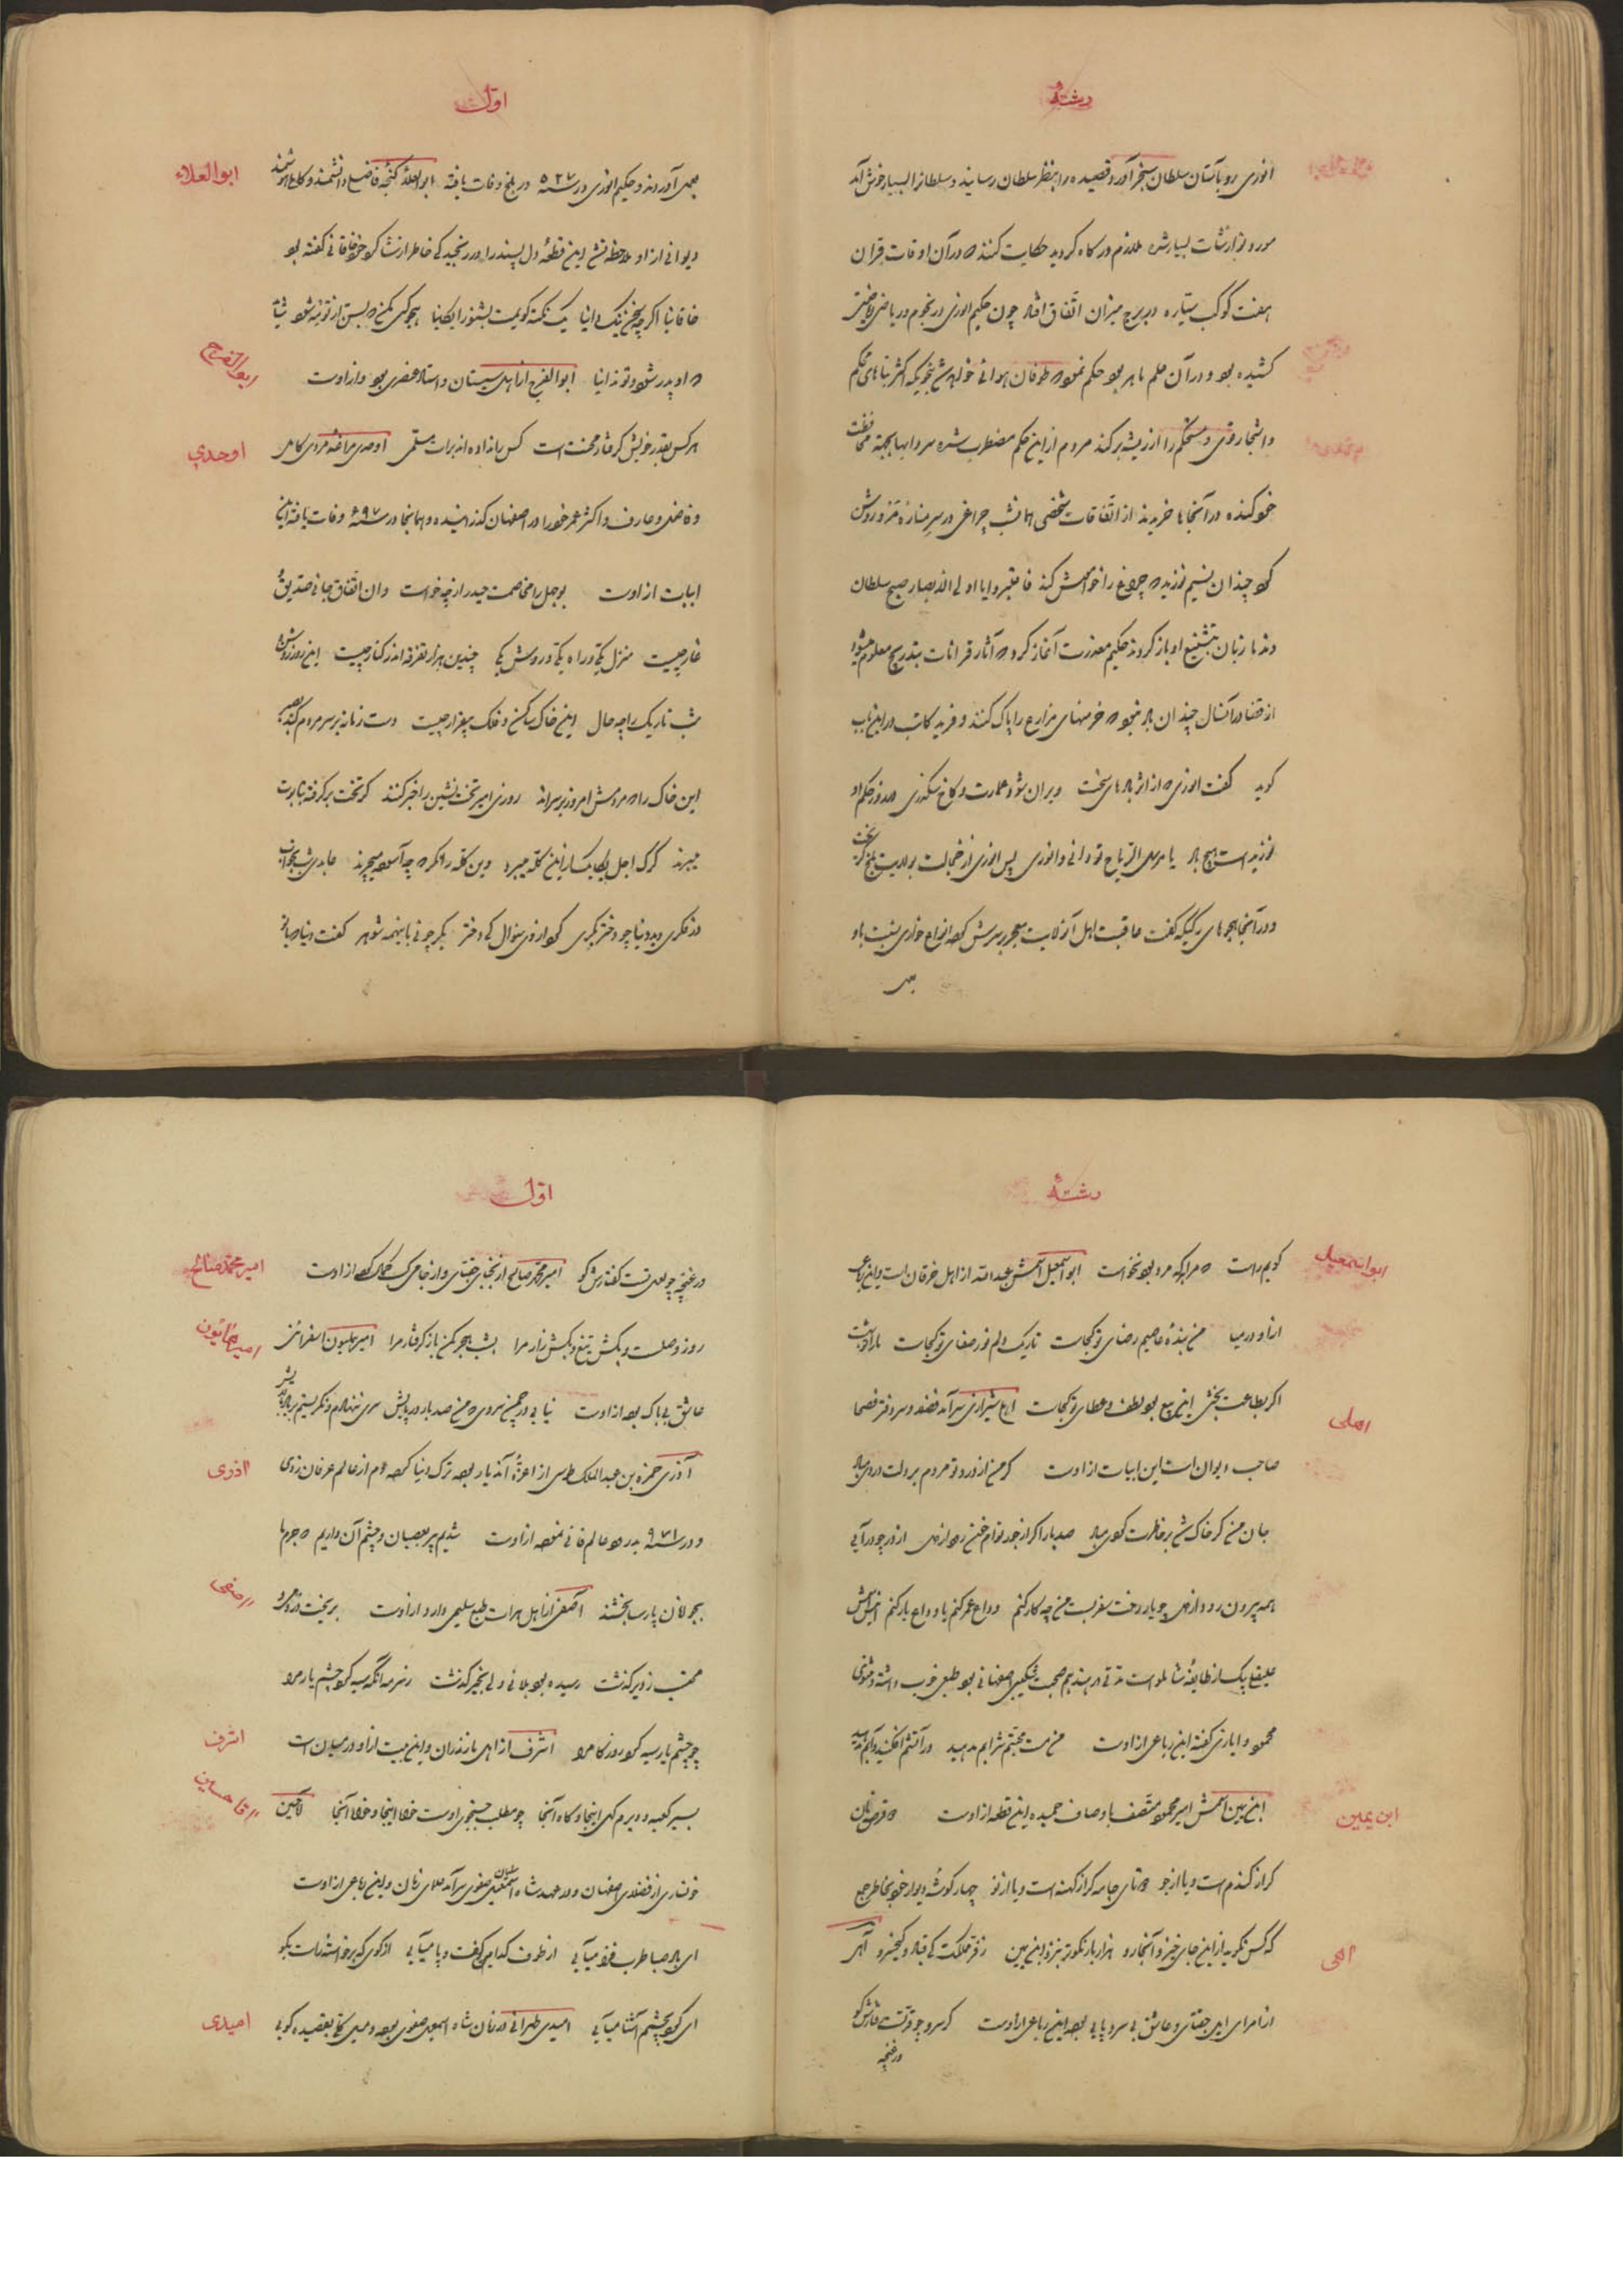 رشتهٔ
انوری رو بآستان سلطان سنجر آورد و قصیده را بنظر سلطان رسانید و سلطانرا بسیار خوش آمد
مورد نوازشات بسیار شده ملازم درگاه گردید حکایت کنند که در آن اوقات قران
هفت کوکب سیاره در برج میزان اتفاق افتاد چون حکیم انوری در نجوم و ریاضی
کشیده بود و در آن علم ماهر بود حکم نمود که طوفان هوائی خواهد شد بنحویکه اکثر بناهای محکم
و اشجار قوی و مستحکم را از ریشه برکند مردم از این حکم مضطرب شده سردابها بجهة محافظت
خود کنده در آنجاها خزیدند از اتفاقات شخصی همانشب چراغی در سر مناره مرو روشن
کرد چندان نسیم نوزید که چراغ را خواموش کند فاعتبروا یا اولی الابصار صبح سلطان
زبان بتشنیع او باز کردند حکیم معذرت آغاز کرد که آثار قرانات بتدریج معلوم میشود
از قضا در آنسال چندان باد نبود که خرمنهای مزارع را پاک کنند و فرید کاتب در این باب
گوید گفت انوری که از اثر بادهای سخت ویران شود عمارت و کاخ سکندری در روز حکم او
نوزیده است هیچ باد یا مرسل الریاح تو دانی و انوری پس انوری از خجالت بولایت بلخ گریخت
و در آنجا هجوهای رکیکه گفت عاقبت اهل آن ولایت معجر بر سرش کرده انواع خواری نسبت باو
بعمل
اول
ابوالعلاء
بعمل آوردند و حکیم انوری در سنه ۵۴۷ در بلخ وفات یافته ابوالعلاء گنجه فاضل و دانشمند و کامل
دیوانی از او ملاحظه نشد این قطعهٔ دل پسند را در رنجیدگی خاطر از شاگرد خود خاقانی گفته بود
خاقانیا اگر چه سخن نیک دانیا یک نکته گویمت بشنو رایگانیا هجو کسی مکن که بسن از تو مه شود شاید
که او پدر شود و تو ندانیا ابوالفرج از اهل سیستان و استاد عنصری بود و از اوست
ابوالفرج
هر کس بقدر خویش گرفتار محنت است کس را نداده اند برات مسلمی اوحدی مراغه مردی کامل
اوحدی
و فاضل و عارف و اکثر عمر خود را در اصفهان گذرانیده و همانجا در سنه ۶۹۷ وفات یافته این
ابیات از اوست بوجهل را مخاصمت حیدر از چه خواست وان اتفاق جانی صدیق
غار چیست منزل یکی و راه یکی و روش یکی چندین هزار تفرقه اندر کنار چیست این روز روشن
شب تاریک را چه حال این خاک ساکن و فلک بیقرار چیست دست زمانه بر سر مردم کند
این خاک را که مردمش امروز بر سراند روزی امیر تخت نشین را خبر کنند کز تخت برگرفته بتابوت
میبرند گرگ اجل یکایک از این گله میبرد وین گله را نگر که چه آسوده میچرند عابدی شب بخواب
در فکری دید دنیا چو دختر بکری کرد از وی سؤال کی دختر بکر چونی با ینهمه شوهر گفت دنیا
رشتهٔ
ابو اسمعیل
گویم راست که مرا هر که مرد بود نخواست ابو اسمعیل اسمش عبدالله از اهل خرقان است و این رباعی
از او در میان من بندهٔ عاصیم رضای تو کجاست تاریک دلم نور صفای تو کجاست ما را تو بهشت
اگر بطاعت بخشی این بیع بود لطف و عطای تو کجاست اهلی شیرازی سرآمد فضلا و سر دفتر فصحا
اهلی
صاحب دیوان است این ابیات از اوست گر من از درد تو مردم بر دلت دردی مباد
جان من گر خاک شد بر خاطرت گردی مباد صد بار اگر از جور توام خون رود از دل از در چو درآیی
همه بیرون رود از دل چو یار رخت سفر بست من چه کار کنم وداع عمر کنم یا وداع یار کنم انیسی اسمش
علیقلی بیک از طایفهٔ شاملو است مدتی در هند هم صحبت شکیبی اصفهانی بود طبعی خوب داشته و مثنوی
محمود و ایازی گفته این رباعی از اوست من مست محبتم شرابم مدهید در آتشم افکنید و آبم مدهید
ابن یمین
ابن یمین اسمش امیر محمود متصف باوصاف حمیده این قطعه از اوست دو قرص نان
گر از گندم است و یا از جو دو تای جامه گر از کهنه است و یا از نو چهار گوشهٔ دیوار خود بخاطر جمع
که کس نگوید از این جای خیز و آنجا رو هزار بار نکوتر بنزد ابن یمین ز فر مملکت کیقباد و کیخسرو آهی
آهی
از امرای جغتای و عاشق بی سر و پایی بوده این رباعی از اوست گر سرو چو قد تست رفتارش کو
ور غنچه
اول
امیر محمد صالح
ور غنچه چو لعل تست گفتارش کو امیر محمد صالح از نجبای جغتای و از جامی کسب کمال کرده از اوست
روز وصلست و بکش تیغ و بکش زار مرا بشب هجر مکن باز گرفتار مرا امیر همایون اسفراینی
امیر همایون
عاشق بی باک بوده از اوست نیابی در چمن سروی که من صد بار در پایش سری ننهادم و نگریستم بر یاد بالایش
آذری حمزه بن عبدالملک طوسی از اعزهٔ آندیار بوده ترک دنیا کرده دم از عالم عرفان زدی
آذری
و در سنه ۹۷۱ بدرود عالم فانی نموده از اوست شدیم پیر بعصیان و چشم آن داریم که جرم ما
بجوانان پارسا بخشند آصفی از اهل هرات طبع سلیمی دارد از اوست بریخت درد می و
آصفی
محتسب ز دیر گذشت رسیده بود بلائی ولی بخیر گذشت ز سرمه آنکه سیه کرد چشم یار مرا
چو چشم یار سیه کرد روزگار مرا اشرف از اهل مازندران و این بیت از او در میان است
اشرف
بسیر کعبه و دیرم گهی اینجا و گاه آنجا چو مطلب جستجوی اوست خواه اینجا و خواه آنجا آقا حسین
آقا حسین
خونساری از فضلای اصفهان و در عهد شاه سلیمان صفوی سرآمد علمای زمان و این رباعی از اوست
ای باد صبا طرب فزا میآیی از طوف کدامین کف پا میآیی از کوی که برخاستهٔ راست بگو
ای گرد بچشم آشنا میآیی امیدی طهرانی در زمان شاه اسمعیل صفوی بوده و میلی بقصیده گویی
امیدی